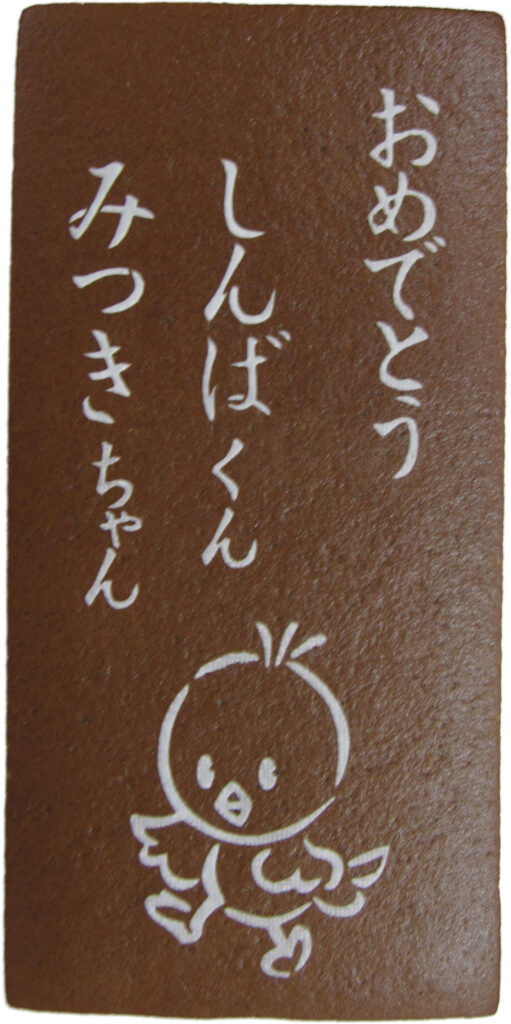 おめでとう
しんばくん
みつきちゃん